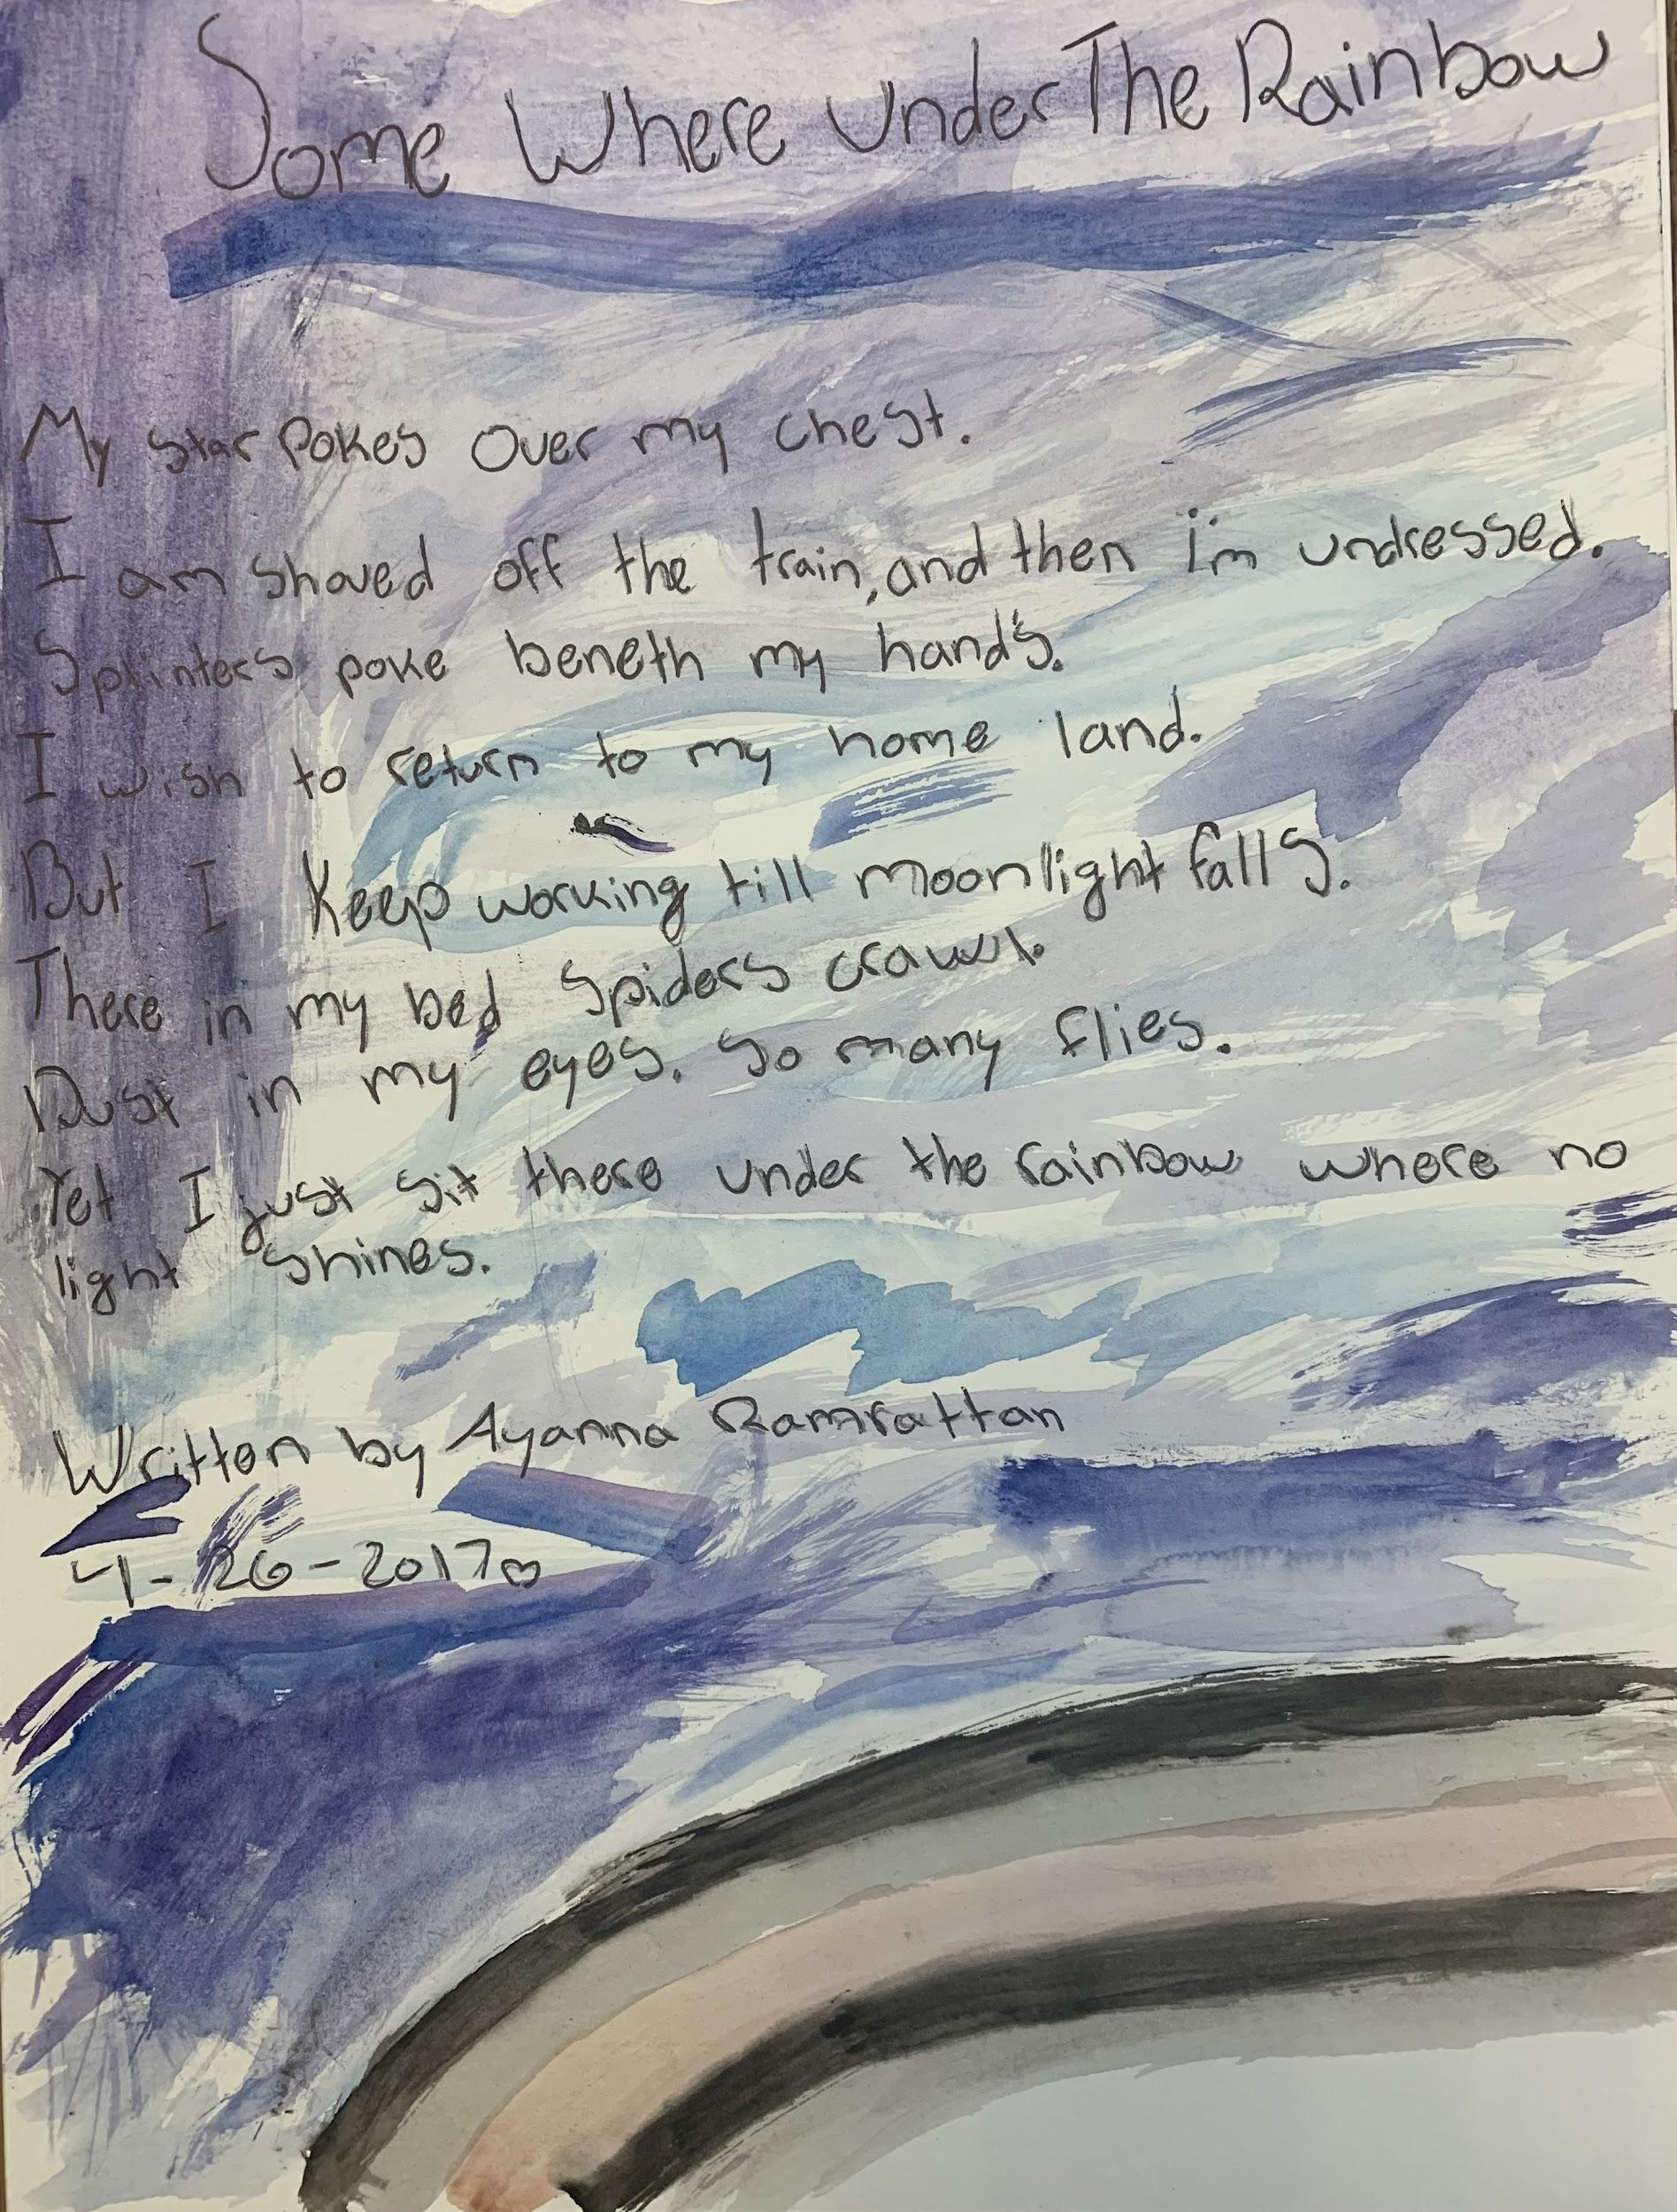 Some Where Under The Rainbow
My star Pokes over my chest.
I am shoved off the train, and then i'm undressed.
Splinters poke beneth my hand's.
I wish to return to my home land.
But I Keep working till moonlight falls.
There in my bed spiders crawl.
Dust in my eyes. So many flies.
Yet I just sit there under the rainbow where no
light shines.
Written by Ayanna Ramrattan
4-26-2017♡